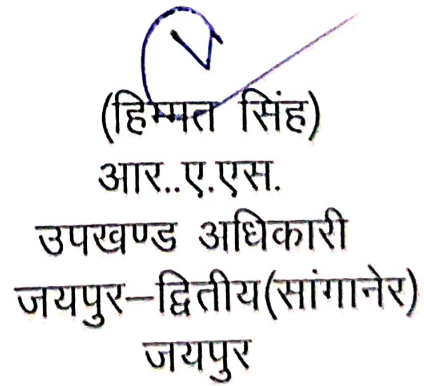 (हिम्मत सिंह)
आर..ए.एस.
उपखण्ड अधिकारी
जयपुर–द्वितीय(सांगानेर)
जयपुर